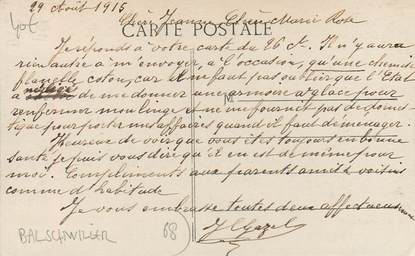 29 Août 1915
40€
Chère Jeanne, Chère Marie Rose
CARTE POSTALE
Je réponds à votre carte du 26 Ct. Il n'y aura
rien autre à m'envoyer, à l'occasion, qu'une chemise
flanelle coton, car il ne faut pas oublier que l'Etat
a négligé de me donner une armoire à glace pour
renfermer mon linge et ne me fournit pas de domes-
tique pour porter mes affaires quand il faut déménager.
Heureux de voir que vous êtes toujours en bonne
santé je puis vous dire qu'il en est de même pour
moi. Compliments aux parents amis & voisins
comme d'habitude
Je vous embrasse toutes deux affectueusement
BALSCHWILLER
68